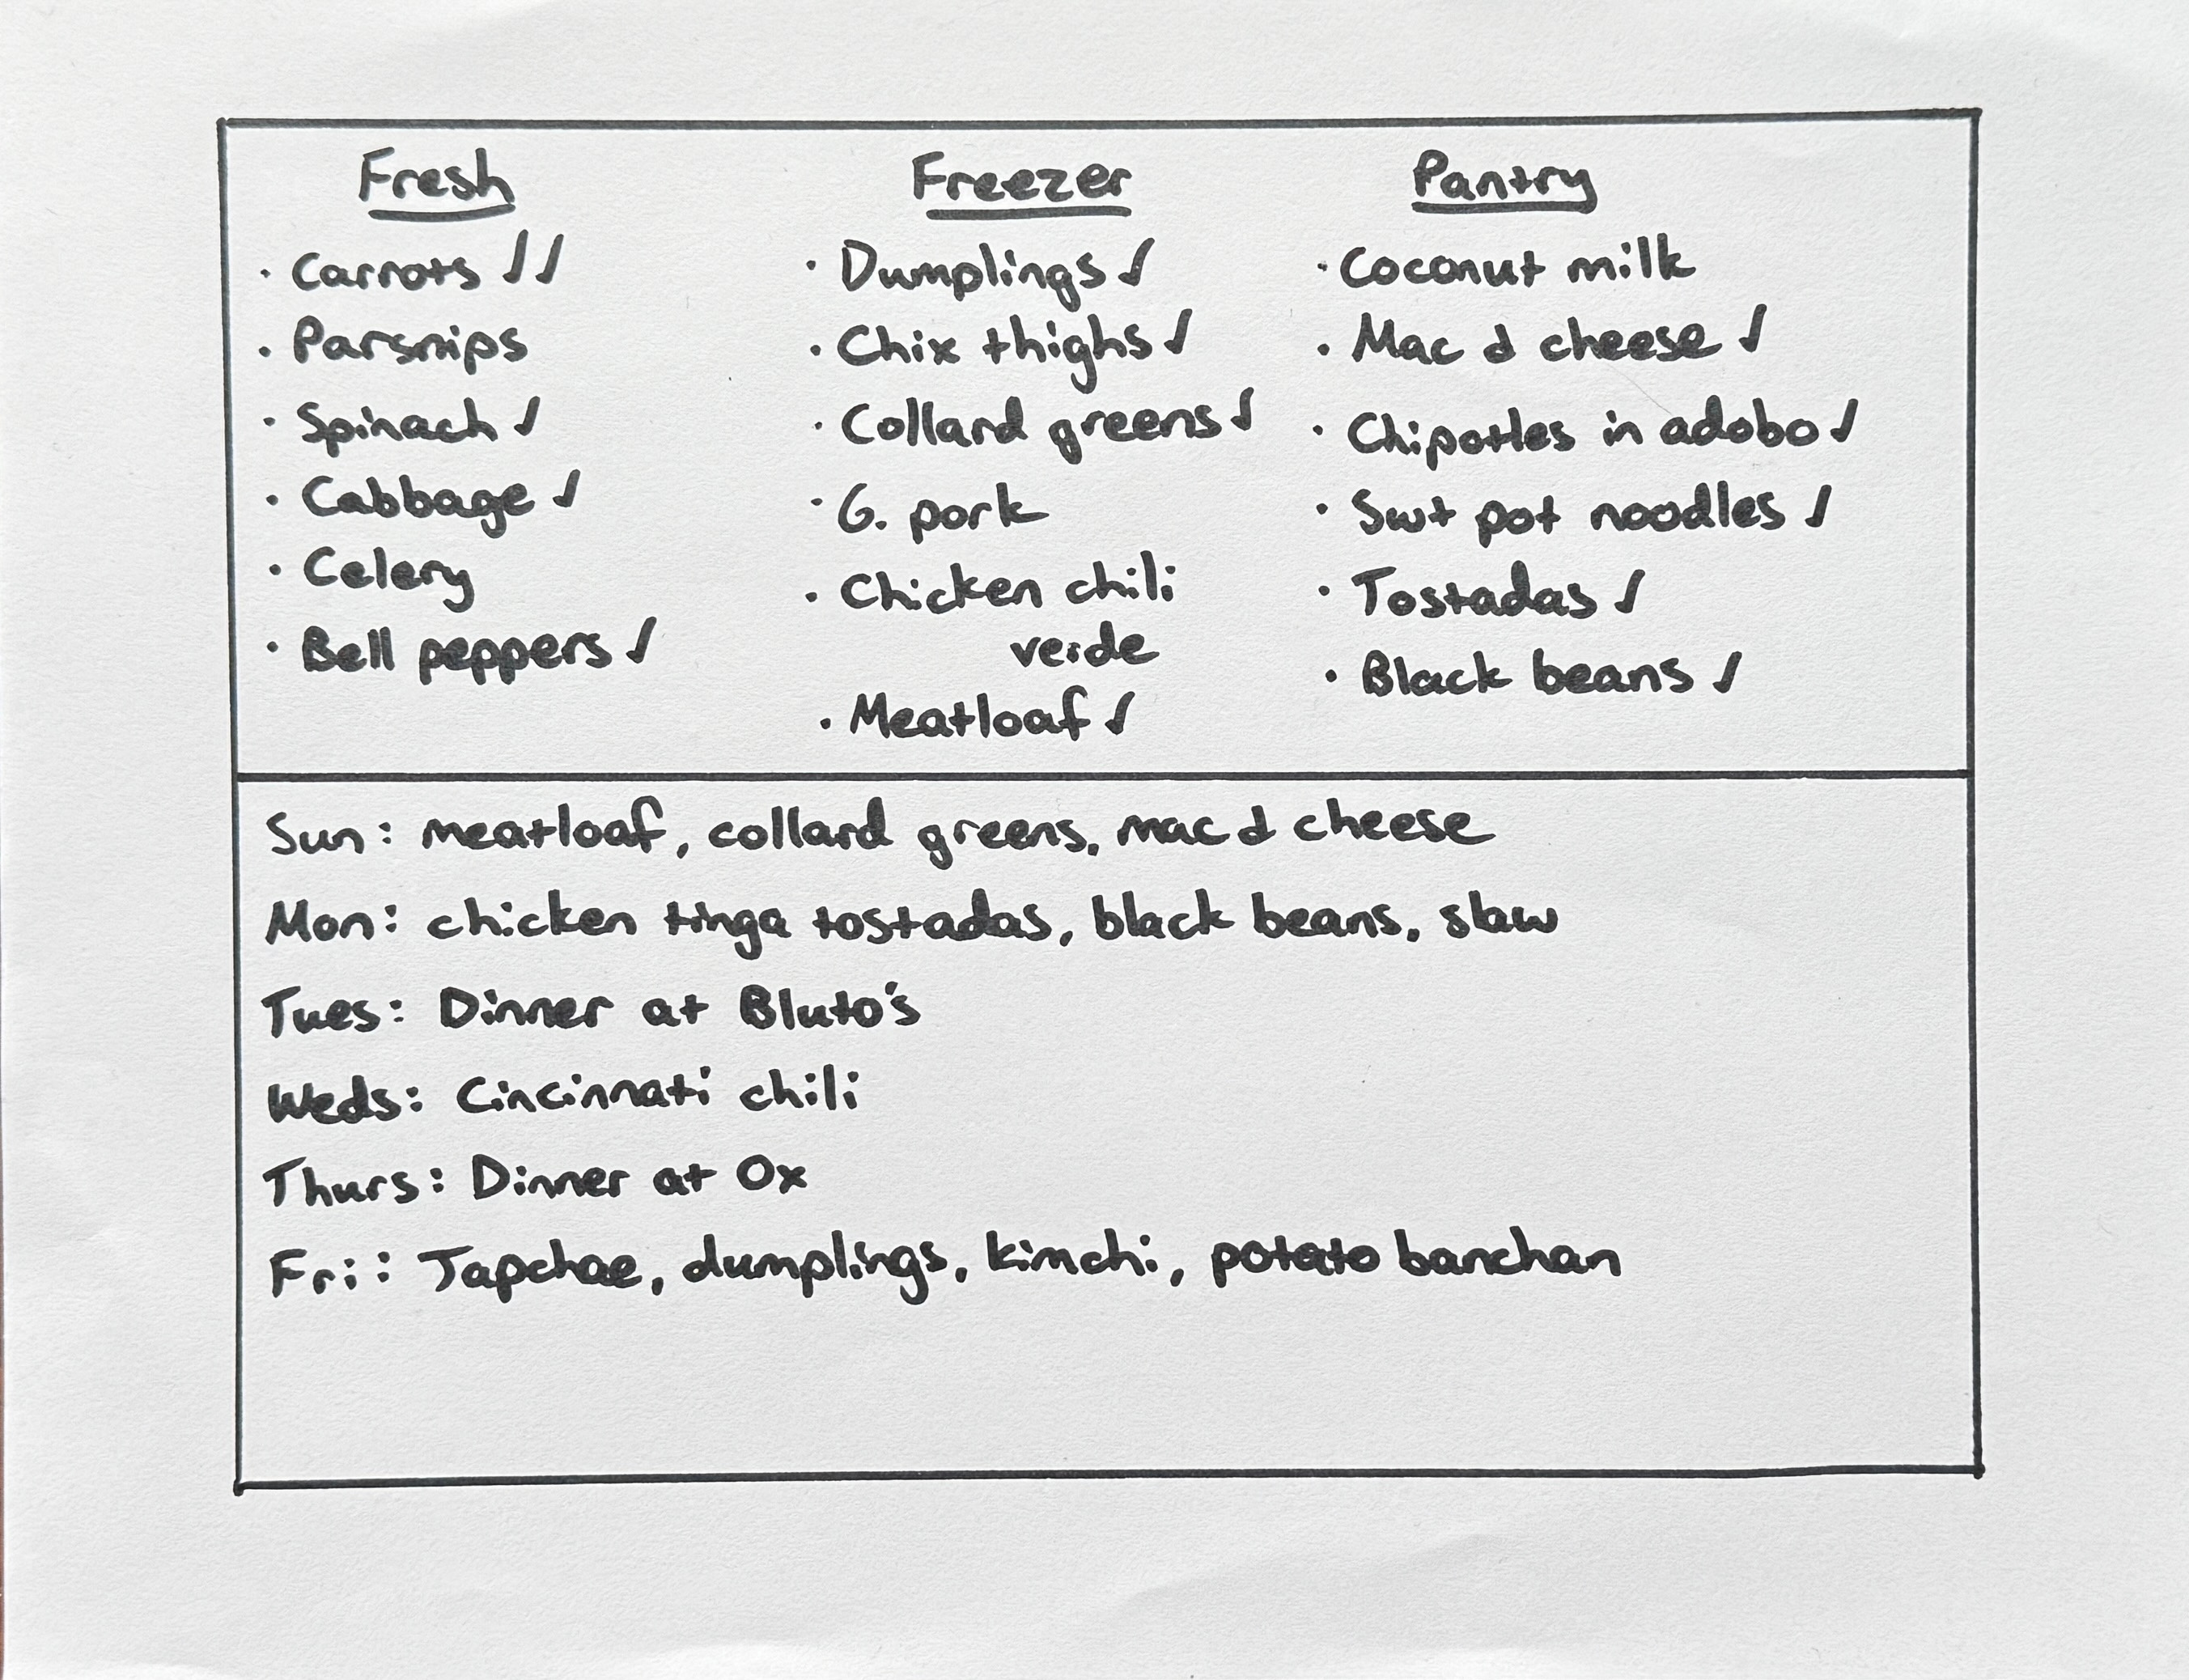 Fresh
· Carrots ✓✓
· Parsnips
· Spinach ✓
· Cabbage ✓
· Celery
· Bell peppers ✓
Freezer
· Dumplings ✓
· Chix thighs ✓
· Collard greens ✓
· G. pork
· Chicken chili
verde
· Meatloaf ✓
Pantry
· Coconut milk
· Mac & cheese ✓
· Chipotles in adobo ✓
· Swt pot noodles ✓
· Tostadas ✓
· Black beans ✓
Sun: meatloaf, collard greens, mac & cheese
Mon: chicken tinga tostadas, black beans, slaw
Tues: Dinner at Bluto's
Weds: Cincinnati chili
Thurs: Dinner at Ox
Fri: Japchae, dumplings, kimchi, potato banchan